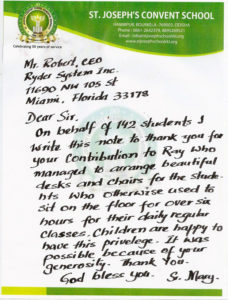 ST. JOSEPH'S CONVENT SCHOOL
HAMIRPUR, ROURKELA - 769003, ODISHA
Celebrating 50 years of service
Mr. Robert, CEO
Ryder System Inc.
11690 NW 105 st
Miami, Florida 33178
Dear Sir.
On behalf of 142 students I
write this note to thank you for
your Contribution to Ray who
managed to arrange beautiful
desks and chairs for the stude-
nts who otherwise used to
sit on the floor for over six
hours for their daily regular
classes. Children are happy to
have this privelege. It was
possible because of your
generosity. Thank You.
God bless you. Sr. Mary.